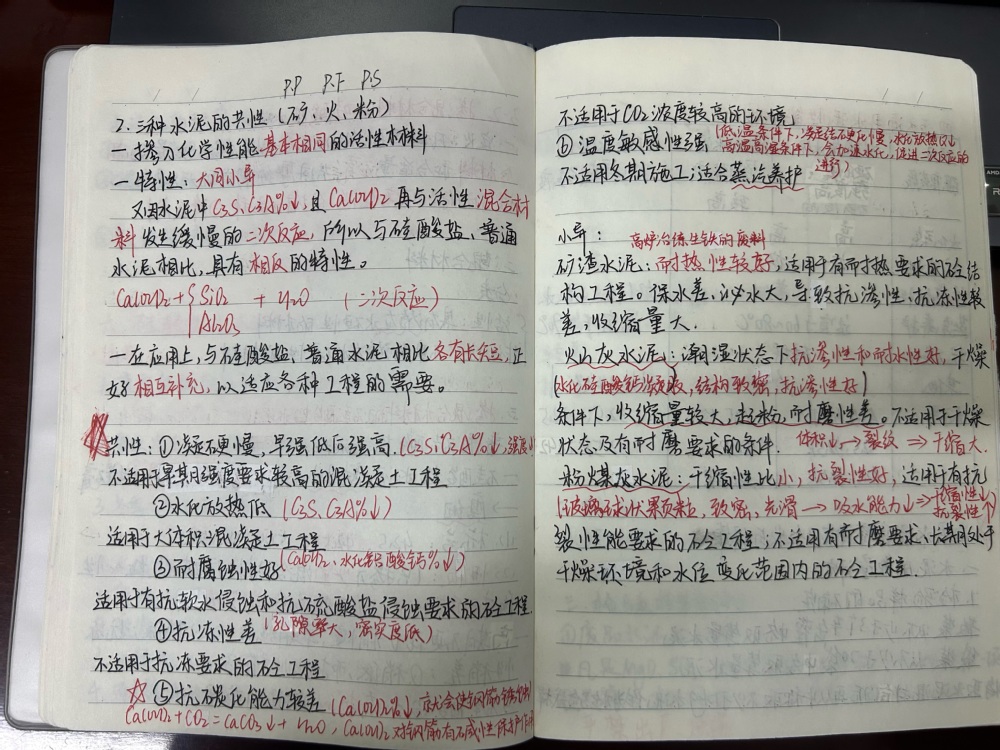 P.P P.F P.S
2. 三种水泥的共性（矿、火、粉）
一掺了化学性能基本相同的活性本材料
一特性：大同小异
又因水泥中C3S、C3A%↓，且Ca(OH)2再与活性混合材
料发生缓慢的二次反应，所以与硅酸盐、普通
水泥相比，具有相反的特性。
Ca(OH)2+{SiO2 + H2O （二次反应）
Al2O3
一在应用上，与硅酸盐、普通水泥相比各有长短，正
好相互补充，以适应各种工程的需要。
共性：①凝硬慢，早强低后强高.（C3S、C3A%↓，强度
不适用于早期强度要求较高的混凝土工程
②水化放热低（C3S、C3A%↓）
适用于大体积混凝土工程
③耐腐蚀性好（Ca(OH)2、水化铝酸钙%↓）
适用于有抗软水侵蚀和抗硫酸盐侵蚀要求的砼工程.
④抗冻性差（孔隙率大，密实度低）
不适用于抗冻要求的砼工程
⑤抗碳化能力较差（Ca(OH)2%↓，就会使钢筋锈蚀）
Ca(OH)2+CO2=CaCO3↓+H2O，Ca(OH)2对钢筋有碱性保护作用
不适用于CO2浓度较高的环境
⑥温度敏感性强（低温条件下，凝结硬化慢，水化放热Q↓
高温高湿条件下，会加速水化，促进二次反应的
进行）
不适用冬期施工；适合蒸汽养护
小异：
高炉冶炼生铁的废料
矿渣水泥：耐热性较好，适用于有耐热要求的砼结
构工程。保水差、泌水大，导致抗渗性、抗冻性较
差，收缩量大.
火山灰水泥：潮湿状态下抗渗性和耐水性好，干燥
（水化硅酸钙凝胶，结构致密，抗渗性好）
条件下，收缩量较大，起粉，耐磨性差。不适用于干燥
状态及有耐磨要求的条件. 体积↓→裂纹⇒干缩大.
粉煤灰水泥：干缩性比小，抗裂性好，适用于有抗
（玻璃球状颗粒，致密，光滑→吸水能力↓⇒干缩性↓
抗裂性↑）
裂性能要求的砼工程；不适用有耐磨要求、长期处于
干燥环境和水位变化范围内的砼工程.